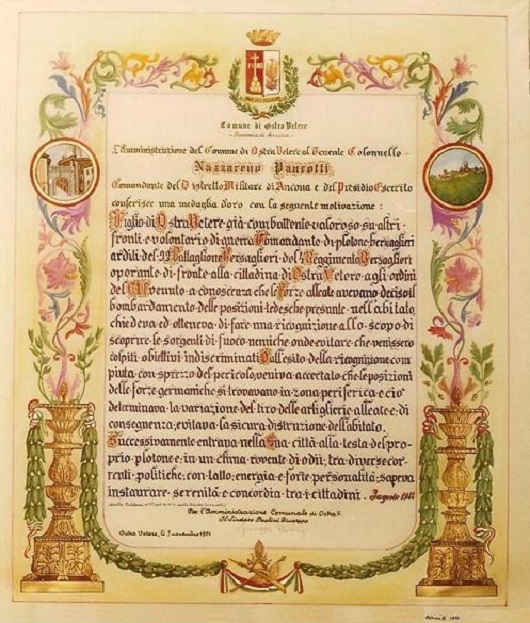 Comune di Ostra Vetere
- Provincia di Ancona -
L'Amministrazione del Comune di Ostra Vetere al Tenente Colonnello -
Nazzareno Pancotti
Comandante del Distretto Militare di Ancona e del Presidio Esercito
conferisce una medaglia d'oro con la seguente motivazione:
Figlio di Ostra Vetere già combattente valoroso su altri
fronti e volontario di guerra Comandante di plotone bersaglieri
arditi del Battaglione Bersaglieri del Reggimento Bersaglieri
operante di fronte alla cittadina di Ostra Vetere agli ordini
del venuto a conoscenza che le Forze alleate avevano deciso il
bombardamento delle posizioni tedesche presunte nell'abitato,
chiedeva ed otteneva di fare una ricognizione allo scopo di
scoprire le sorgenti di fuoco nemiche onde evitare che venissero
colpiti obiettivi indiscriminati Dall'esito della ricognizione com
piuta con sprezzo del pericolo, veniva accertato che le posizioni
delle forze germaniche si trovavano in zona periferica e ciò
determinava la variazione del tiro delle artiglierie alleate e di
conseguenza, evitava la sicura distruzione dell'abitato.
Successivamente entrava nella Sua città alla testa del pro-
prio plotone e in un clima rovente di odii, tra diverse cor-
renti politiche, con tatto, energia e forte personalità, sapeva
instaurare serenità e concordia tra i cittadini.
Per l'Amministrazione Comunale di Ostra V.
Il Sindaco Paolini Giuseppe
Ostra Vetere, li novembre 1971